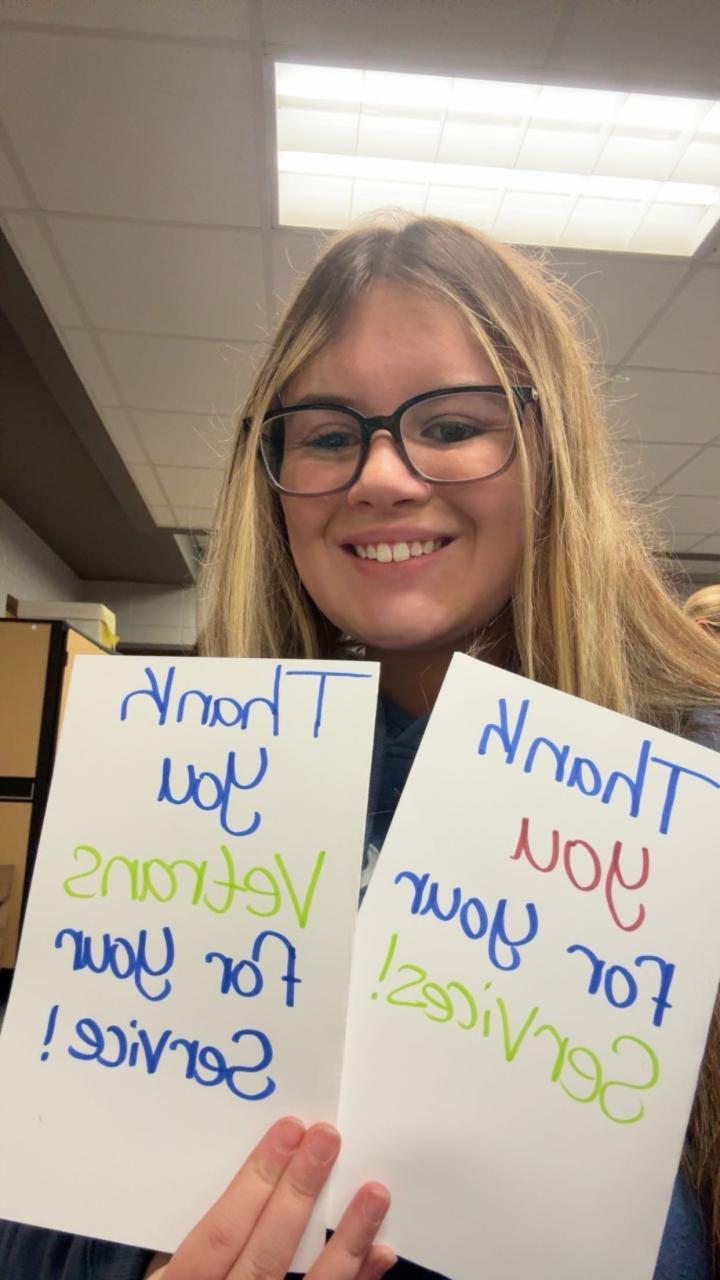 Thank
you
Vetrans
for your
Service!
Thank
you
For your
Services!